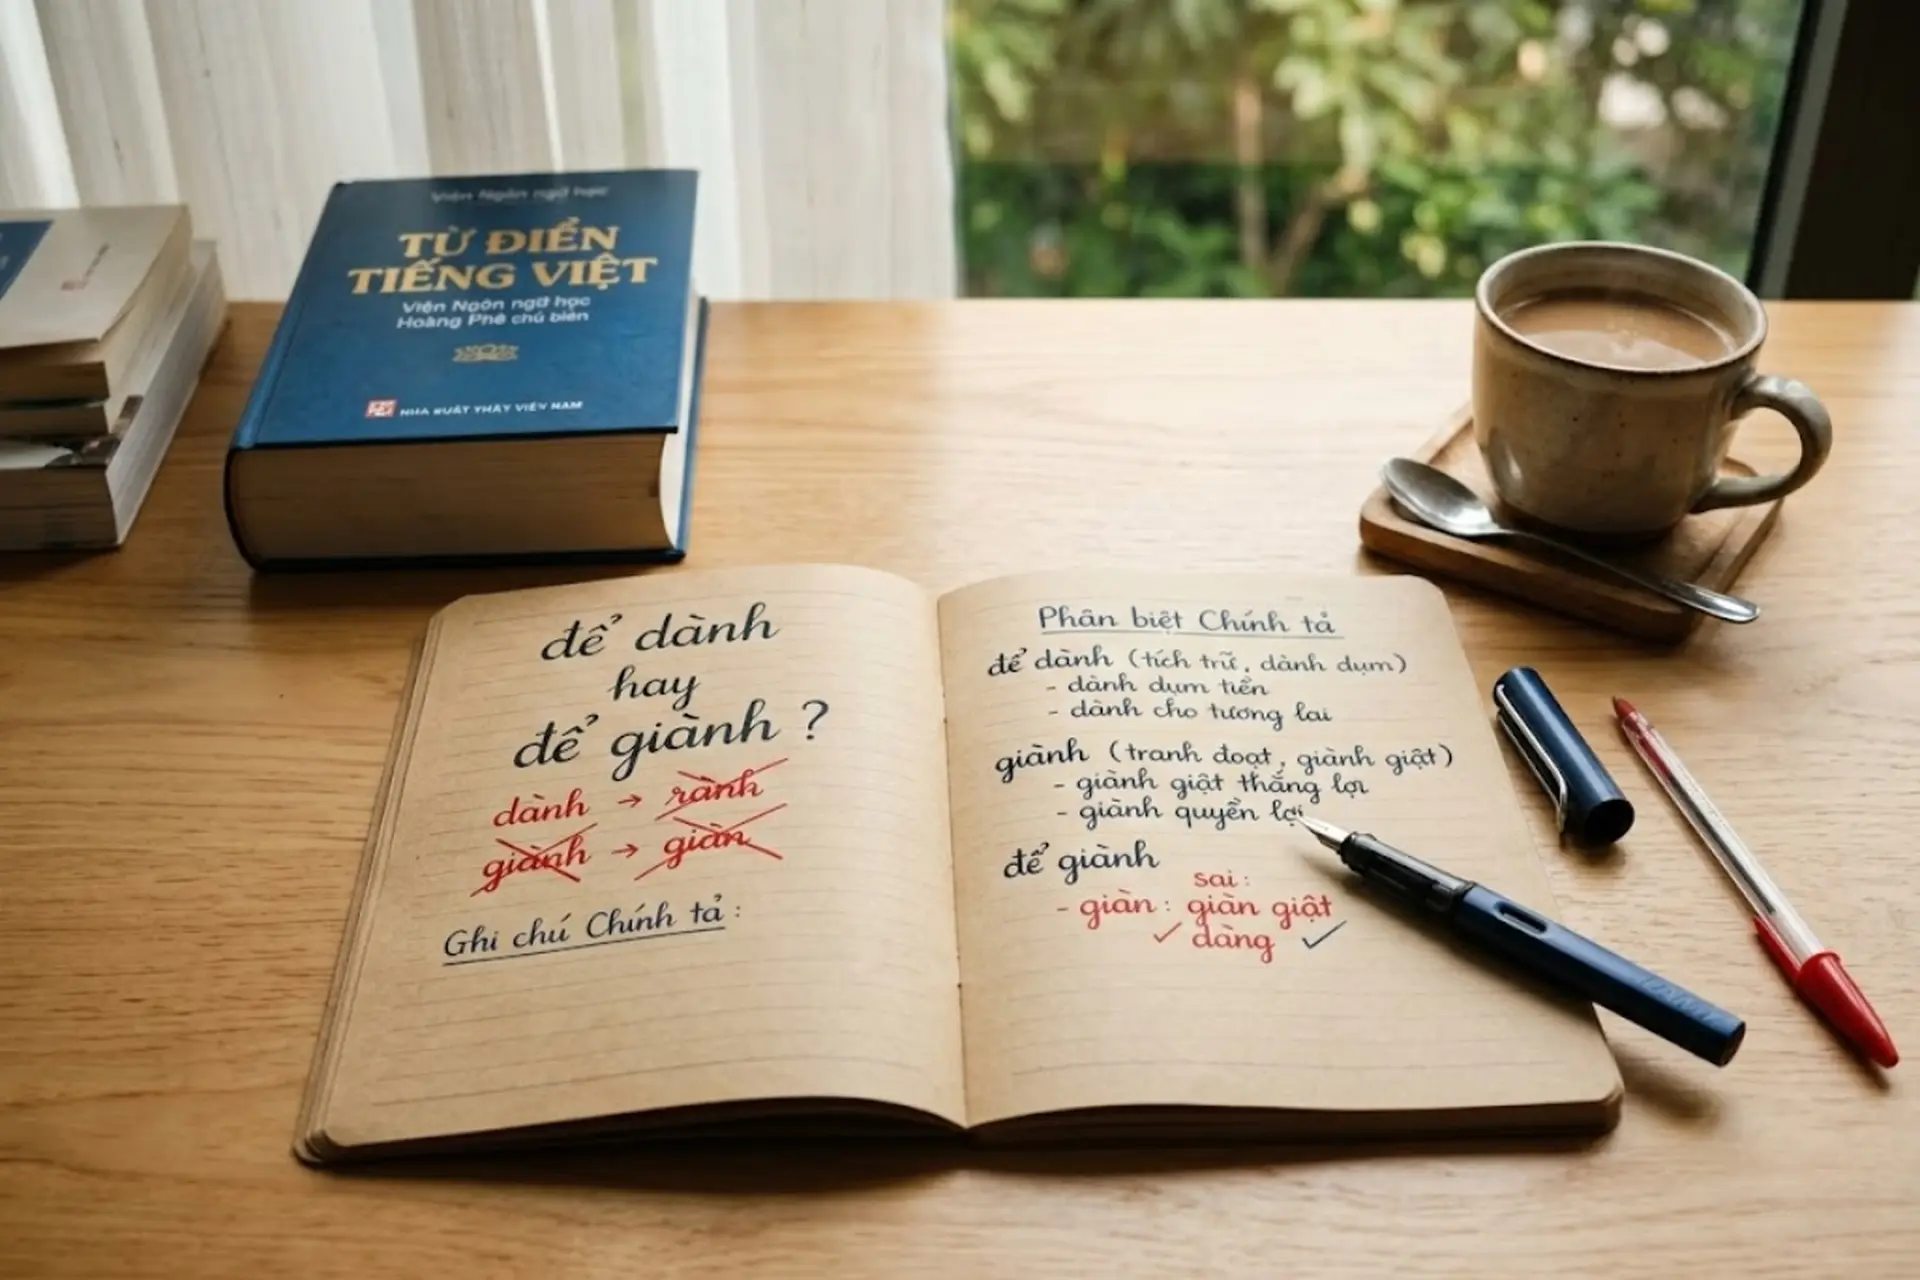 Viện Ngôn ngữ học
TỪ ĐIỂN
TIẾNG VIỆT
Viện Ngôn ngữ học
Hoàng Phê chủ biên
để dành
hay
để giành ?
dành → rành
giành → giàn
Ghi chú Chính tả :
Phân biệt Chính tả
để dành (tích trữ, dành dụm)
- dành dụm tiền
- dành cho tương lai
giành (tranh đoạt, giành giật)
- giành giật thắng lợi
- giành quyền lợi
để giành
sai :
- giàn : giàn giật
✓ dàng ✓